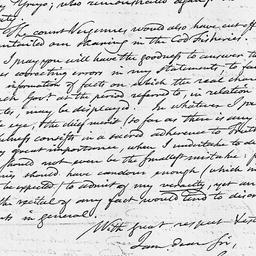 ; who remonstrated against
The Count Vergennes would also have cut off
our sharing in the Cod fisheries.
I pray you will have the goodness to answer
correcting errors in my statements, to fa
information of facts on which the real char
at the period referred to, in relation
may be displayed. In whatever I pre
eye, the chief merit (so far as there is any
consists in a sacred adherence to truth
great importance, when I undertake to de
should not even be the smallest mistake: for
should have candour enough (which
be expected) to admit of my veracity, yet an
the recital of any fact would tend to disc
in general.
With great respect & este
I am, dear Sir,